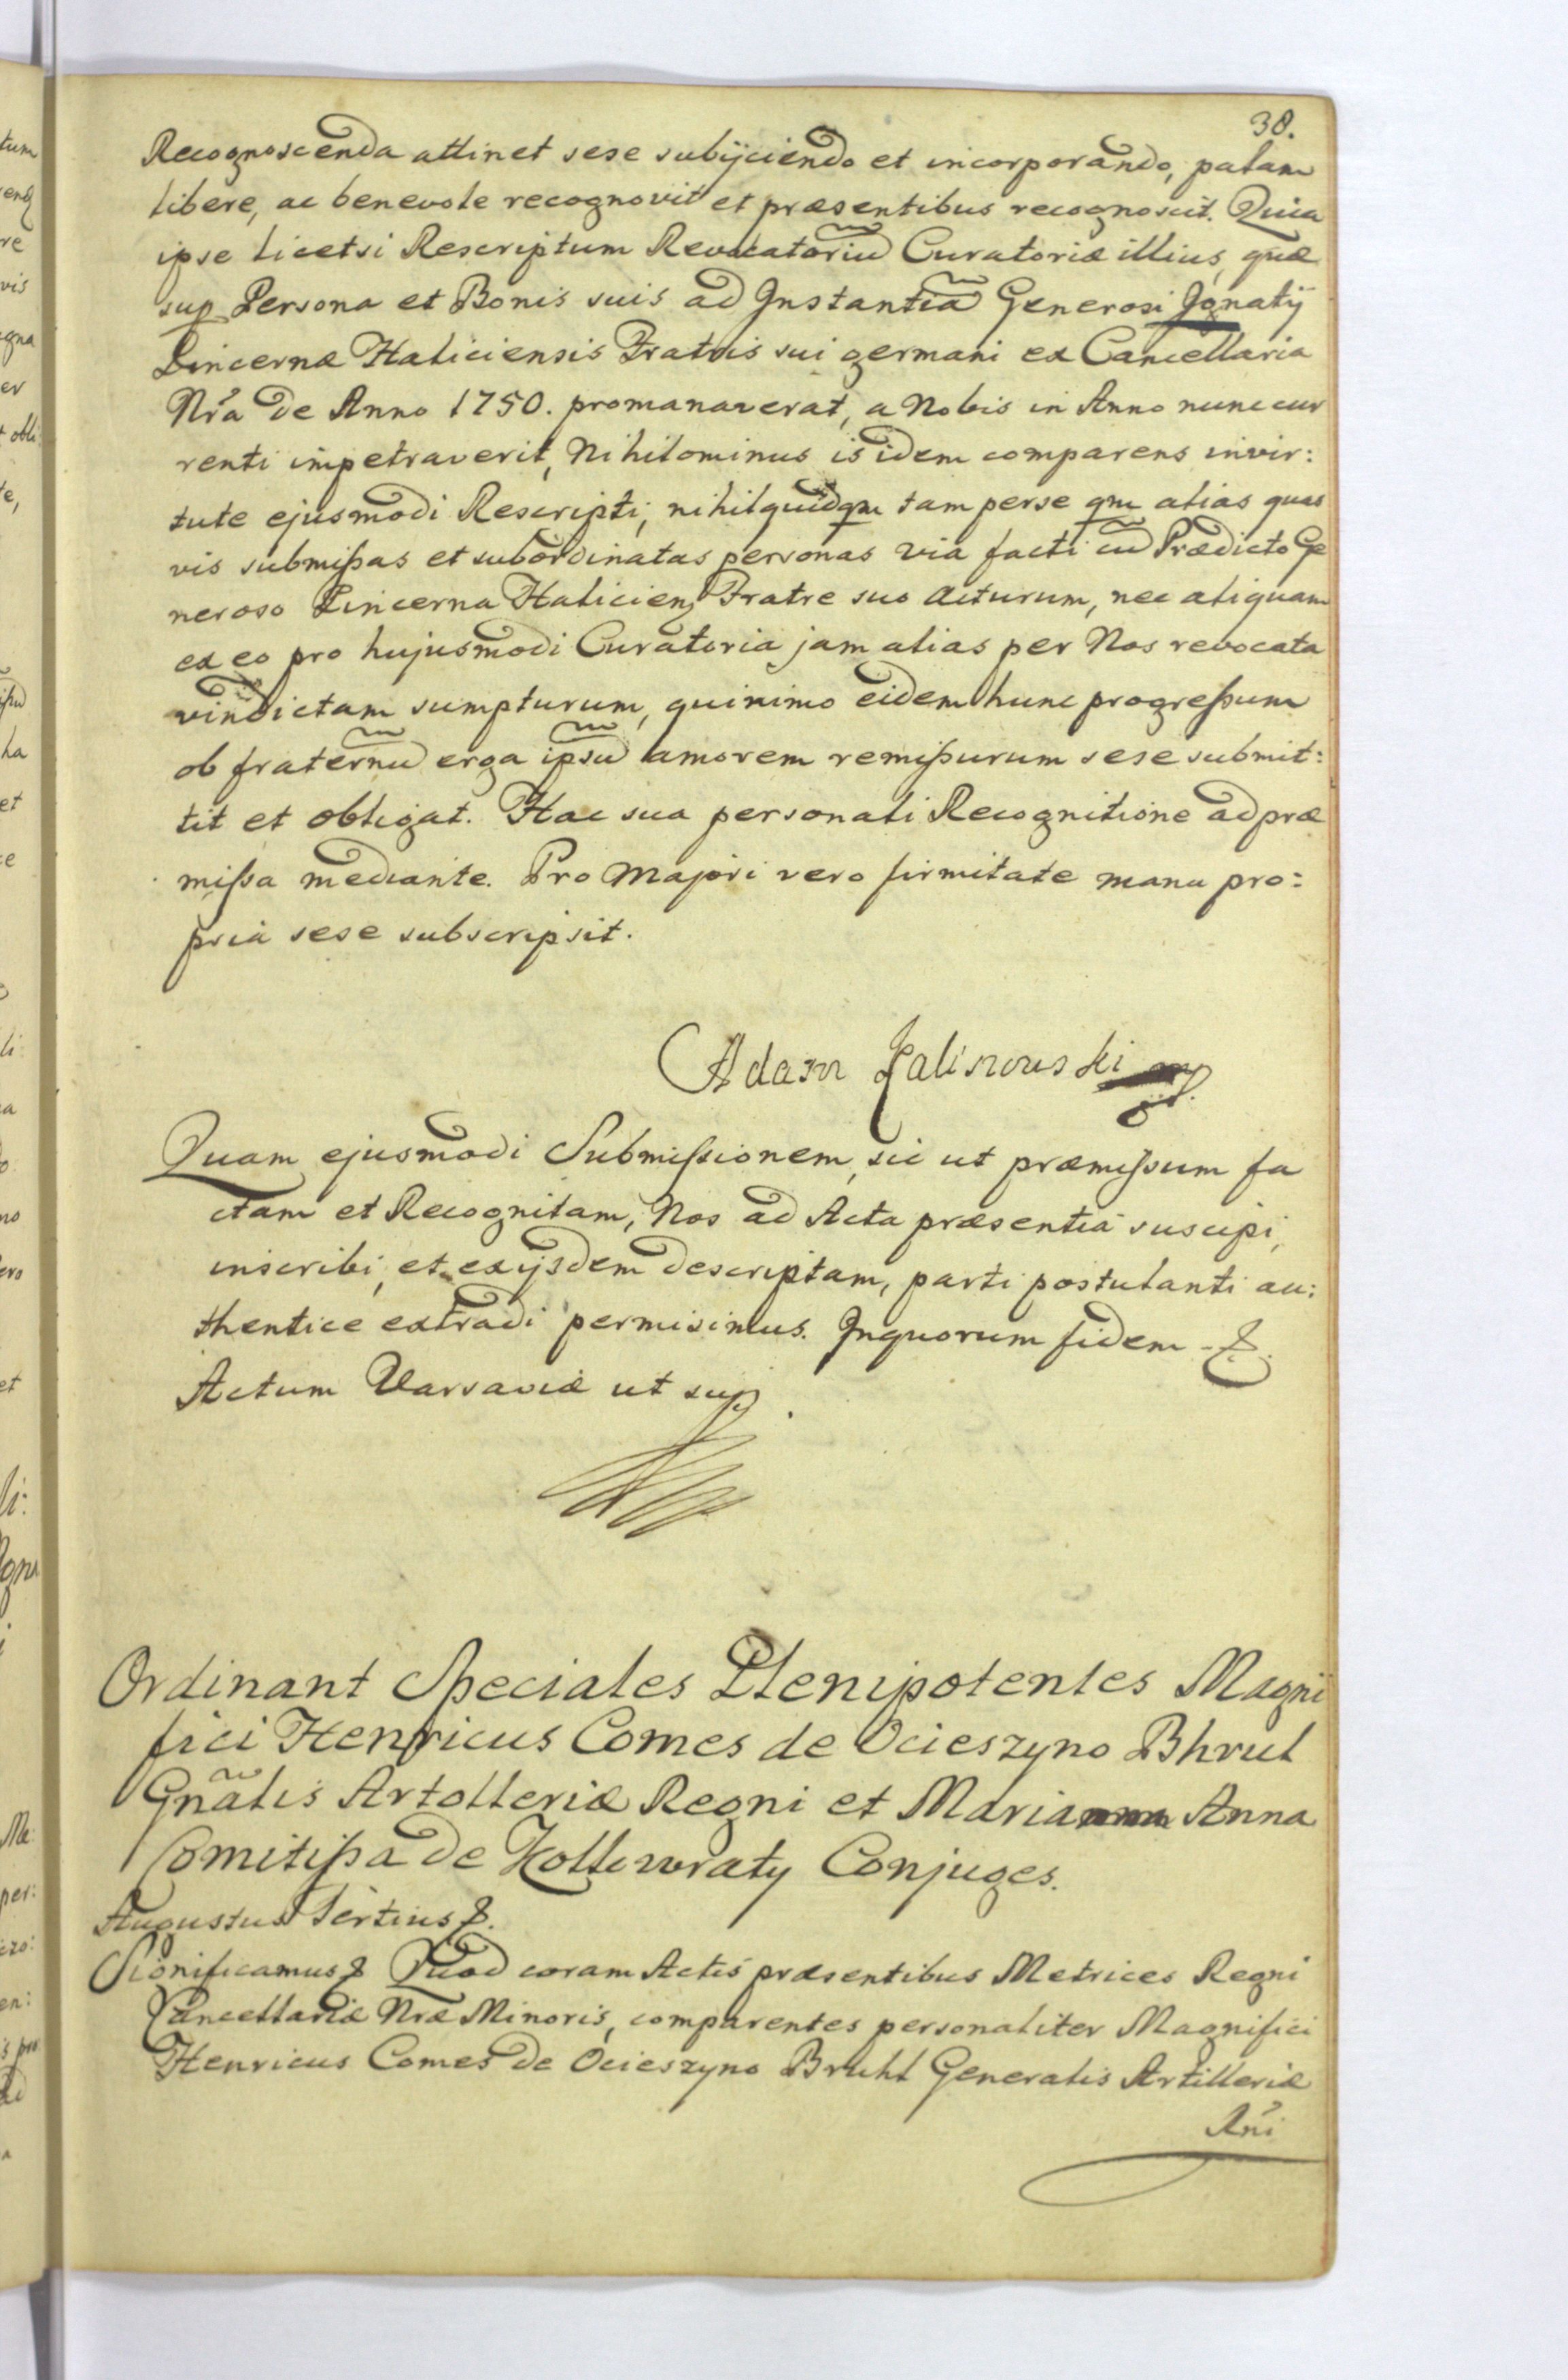 38.
Recognoscenda attinet sese subijciendo et incorporando, palam
libere, ac benevole recognovit et præsentibus recognoscit. Quia
ipse licetsi Rescriptum Revocatoriũ Curatoriæ illius, quæ
sup Persona et Bonis suis ad Jnstantiã Generosi Jgnatij
Pincernæ Haliciensis Fratris sui germani ex Cancellaria
Nr̃a de Anno 1750. promanaverat, a Nobis in Anno nunc cur
renti impetraverit, Nihilominus is idem comparens invir:
tute ejusmodi Rescripti, nihil quidqm tam perse qm alias quas
vis submißas et subordinatas personas via facti cũ Prædicto Ge
neroso Pincerna Halicien Fratre suo acturum, nec aliquam
ex eo pro hujusmodi Curatoria jam alias per Nos revocata
vindictam sumpturum, quinimo eidem hunc progreßum
ob fraternũ erga ipsũ amorem remißurum sese submit:
tit et obligat. Hac sua personali Recognitione ad præ
mißa mediante. Pro Majori vero firmitate manu pro:
pria sese subscripsit.
Adam Kalinowski
Quam ejusmodi Submißionem, sic ut præmißum fa
ctam et Recognitam, Nos ad Acta præsentia suscipi,
inscribi, et exijsdem descriptam, parti postulanti au:
thentice extradi permisimus. Jnquorum fidem - &.
Actum Varsaviæ ut sup.
Ordinant Speciales Plenipotentes Magni
fici Henricus Comes de Ocieszyno Bhrul
Gnãlis Artolleriæ Regni et Maria Anna
Comitißa de Kollowraty Conjuges.
Augustus Tertius &.
Significamus & Quod coram Actis præsentibus Metrices Regni
Cancellariæ Nræ Minoris, comparentes personaliter Magnifici
Henricus Comes de Ocieszyno Bruhl Generalis Artilleriæ
Rñi